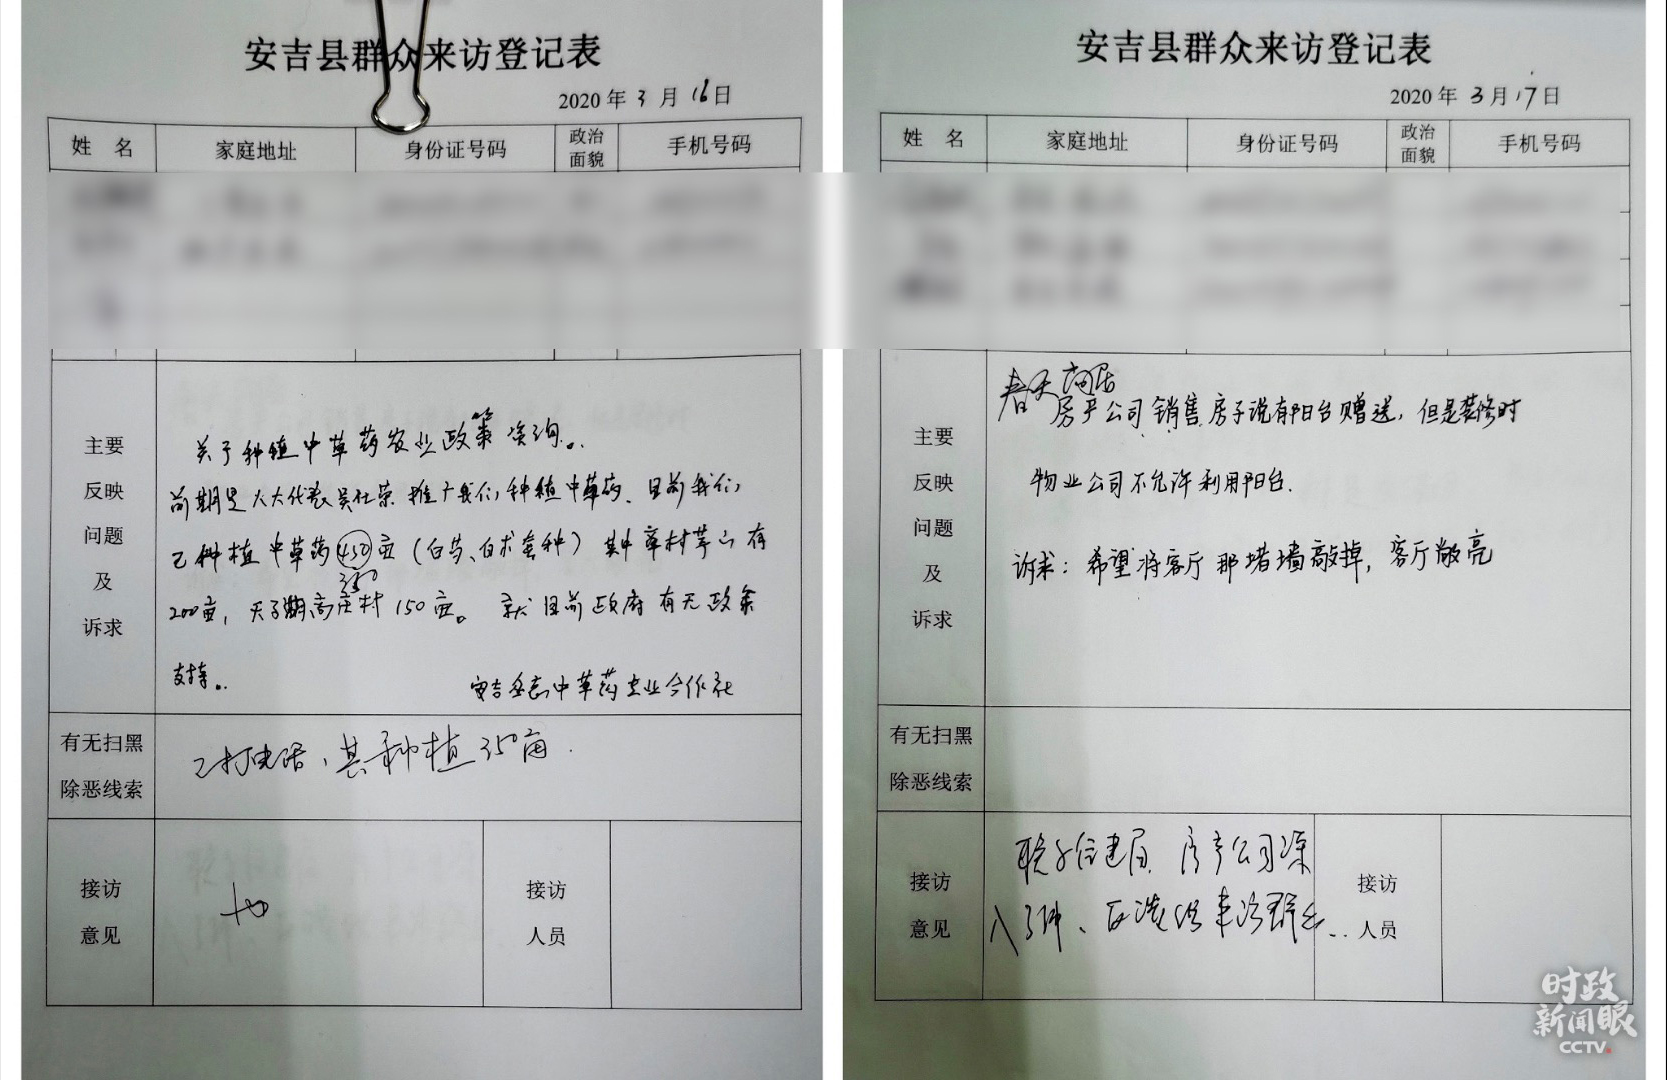 安吉县群众来访登记表
2020年3月16日
姓名 家庭地址 身份证号码 政治面貌 手机号码
主要反映问题及诉求
关于种植中草药农业政策咨询。
前期是人大代表吴仕荣推广我们种植中草药、目前我们
已种植中草药450亩(白芍、白术套种)其中章村 有
350
200亩,天子湖高庄村150亩。就目前政府有无政策
支持。
安吉 中草药专业合作社
有无扫黑除恶线索
已打电话、其种植350亩.
接访意见
接访人员
安吉县群众来访登记表
2020年3月17日
姓名 家庭地址 身份证号码 政治面貌 手机号码
主要反映问题及诉求
春天
房产公司销售房子说有阳台赠送,但是装修时
物业公司不允许利用阳台.
诉求:希望将客厅那堵墙敲掉,客厅敞亮
有无扫黑除恶线索
接访意见
住建局、房产公司深
入了解、反馈给来访群众..
接访人员
时政
新闻眼
CCTV